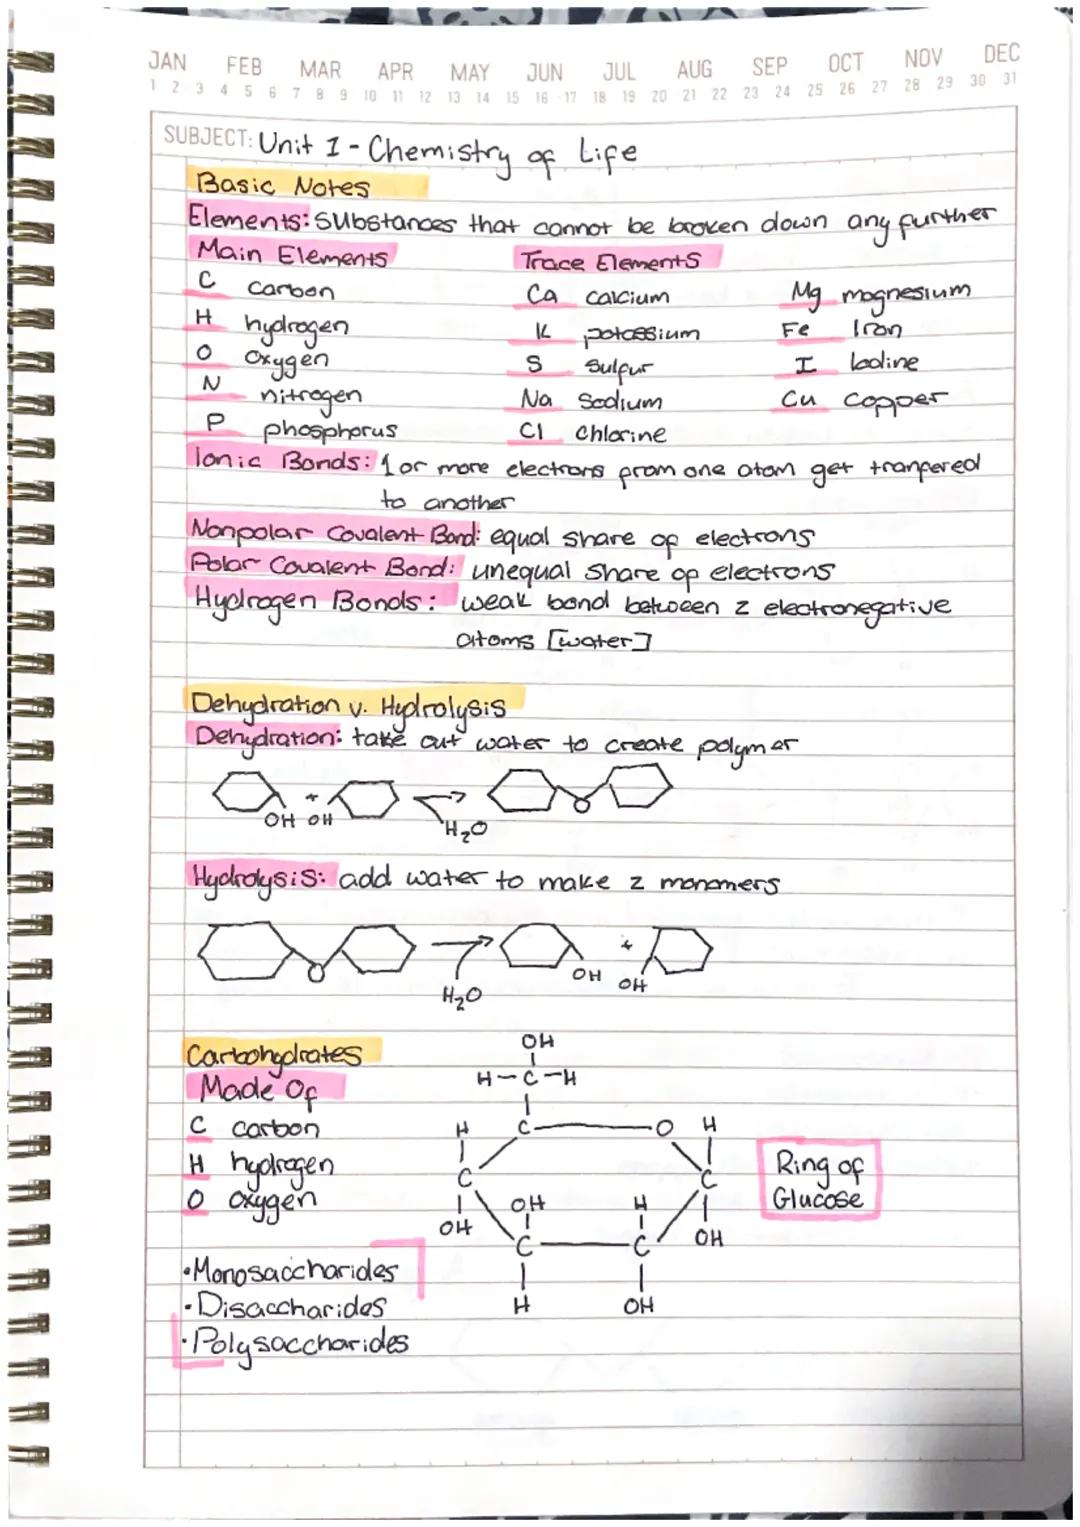 JAN FEB MAR APR MAY JUN JUL AUG SEP OCT NOV DEC
1 2 3 4 5 6 7 8 9 10 11 12 13 14 15 16 17 18 19 20 21 22 23 24 25 26 27 28 29 30 31
SUBJECT: Unit 1 - Chemistry of Life
Basic Notes
Elements: substances that cannot be broken down any further
Main Elements Trace Elements
C carbon Ca calcium Mg magnesium
H hydrogen K potassium Fe Iron
O oxygen S sulfur I Iodine
N nitrogen Na Sodium Cu Copper
P phosphorus Cl Chlorine
Ionic Bonds: 1 or more electrons from one atom get tranfered
to another
Nonpolar Covalent Bond: equal share of electrons
Polar Covalent Bond: unequal share of electrons
Hydrogen Bonds: weak bond between 2 electronegative
atoms [water]
Dehydration v. Hydrolysis
Dehydration: take out water to create polymer
+
OH OH
H₂O
O
Hydrolysis: add water to make 2 monomers
O
H₂O
+
OH OH
Carbohydrates
Made Of
C carbon
H hydrogen
O oxygen
OH
H-C-H
H C O H
C C
OH OH H OH
C C
H OH
Ring of
Glucose
•Monosaccharides
•Disaccharides
•Polysaccharides